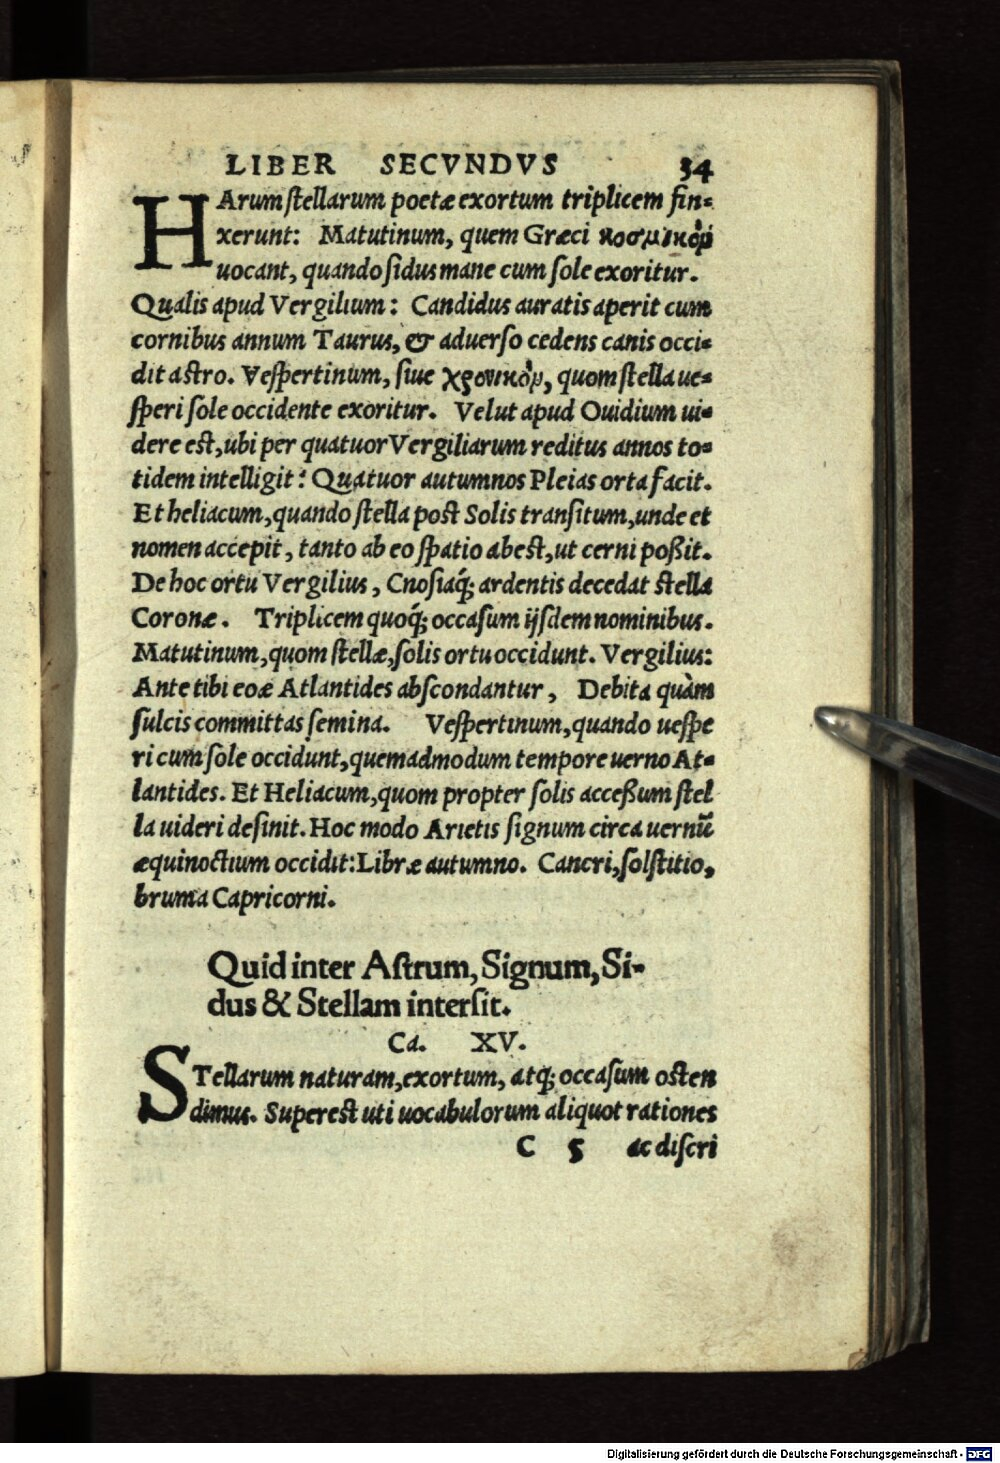 LIBER SECVNDVS 34
HArum stellarum poetæ exortum triplicem fin=
xerunt: Matutinum, quem Græci κοσμικὸν
uocant, quando sidus mane cum sole exoritur.
Qualis apud Vergilium: Candidus auratis aperit cum
cornibus annum Taurus, & aduerso cedens canis occi=
dit astro. Vespertinum, siue χρονικὸν, quom stella ue=
speri sole occidente exoritur. Velut apud Ouidium ui=
dere est, ubi per quatuor Vergiliarum reditus annos to=
tidem intelligit: Quatuor autumnos Pleias orta facit.
Et heliacum, quando stella post Solis transitum, unde et
nomen accepit, tanto ab eo spatio abest, ut cerni poßit.
De hoc ortu Vergilius, Cnosiaq́; ardentis decedat stella
Coronæ. Triplicem quoq́; occasum ijsdem nominibus.
Matutinum, quom stellæ, solis ortu occidunt. Vergilius:
Ante tibi eoæ Atlantides abscondantur, Debita quàm
sulcis committas semina. Vespertinum, quando uespe
ri cum sole occidunt, quemadmodum tempore uerno At=
lantides. Et Heliacum, quom propter solis acceßum stel
la uideri desinit. Hoc modo Arietis signum circa uernũ
æquinoctium occidit: Libræ autumno. Cancri, solstitio,
bruma Capricorni.
Quid inter Astrum, Signum, Si=
dus & Stellam intersit.
Ca. XV.
STellarum naturam, exortum, atq; occasum osten
dimus. Superest uti uocabulorum aliquot rationes
C 5 ac discri
Digitalisierung gefördert durch die Deutsche Forschungsgemeinschaft - DFG